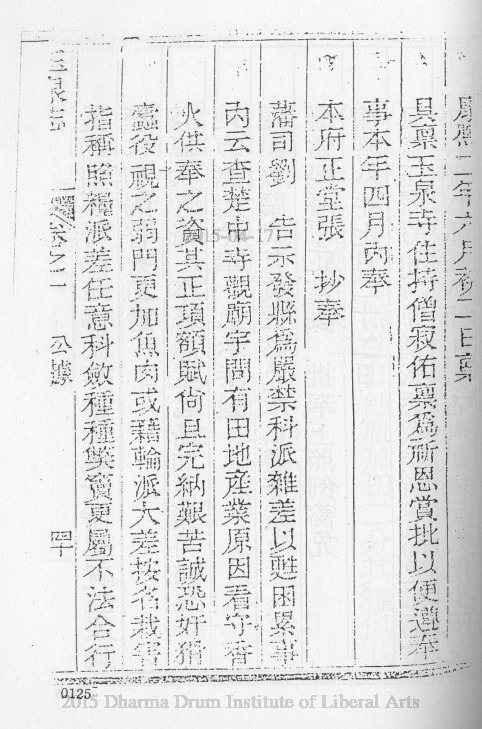 康熙二年六月初二日稟
具稟玉泉寺住持僧寂佑稟為祈恩賞批以便遵奉
事本年四月內奉
本府正堂張 抄奉
藩司劉 告示發縣為嚴禁科派雜差以甦困累事
內云查楚中寺觀廟宇間有田地產業原因看守香
火供奉之資其正項額賦尚且完納艱苦誠恐奸猾
蠹役視之弱門更加魚肉或藉輪派大差按名栽害
指稱照糧派差任意科斂種種獘竇更屬不法合行
玉泉志 卷之一 公據 四十
0125
2015 Dharma Drum Institute of Liberal Arts